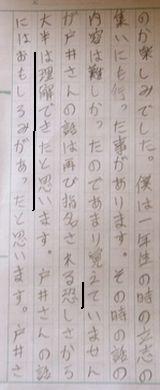 のが楽しみでした。僕は一年生の時の立志の
集いにも行った事があります。その時の話の
内容は難しかったのであまり覚えていません
が戸井さんの話は再び指名される恐しさから
大半は理解できたと思います。戸井さんの話
にはおもしろみがあったと思います。戸井さ